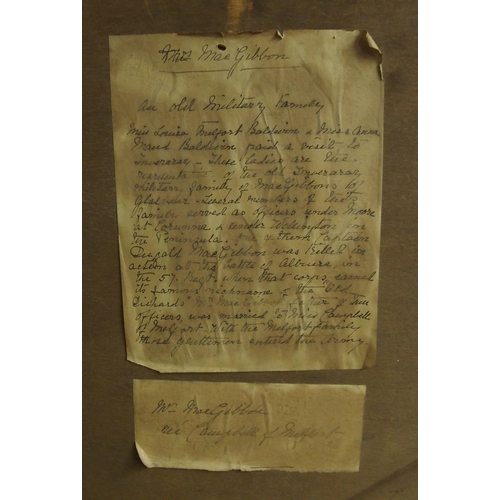 MacGibbon
an old Military Family
Miss Louisa Melfort Baldwin & Miss Anna
Maud Baldwin paid a visit to
Inveraray - These ladies are the
of the old Inveraray
Military family of MacGibbons by
Several members of this
family served as officers under Moore
at Corunna & under Wellington in
the Peninsula. one of them Captain
Dugald MacGibbon was killed in
action at the Battle of Albuera in
the 57th Regt when that corps earned
its famous nickname of the "Old
Diehards" Mr MacGibbon father of
officers was married to Miss Campbell
of Melfort. With the Melfort family
entered the Army
Mrs MacGibbon
née Campbell of Melfort